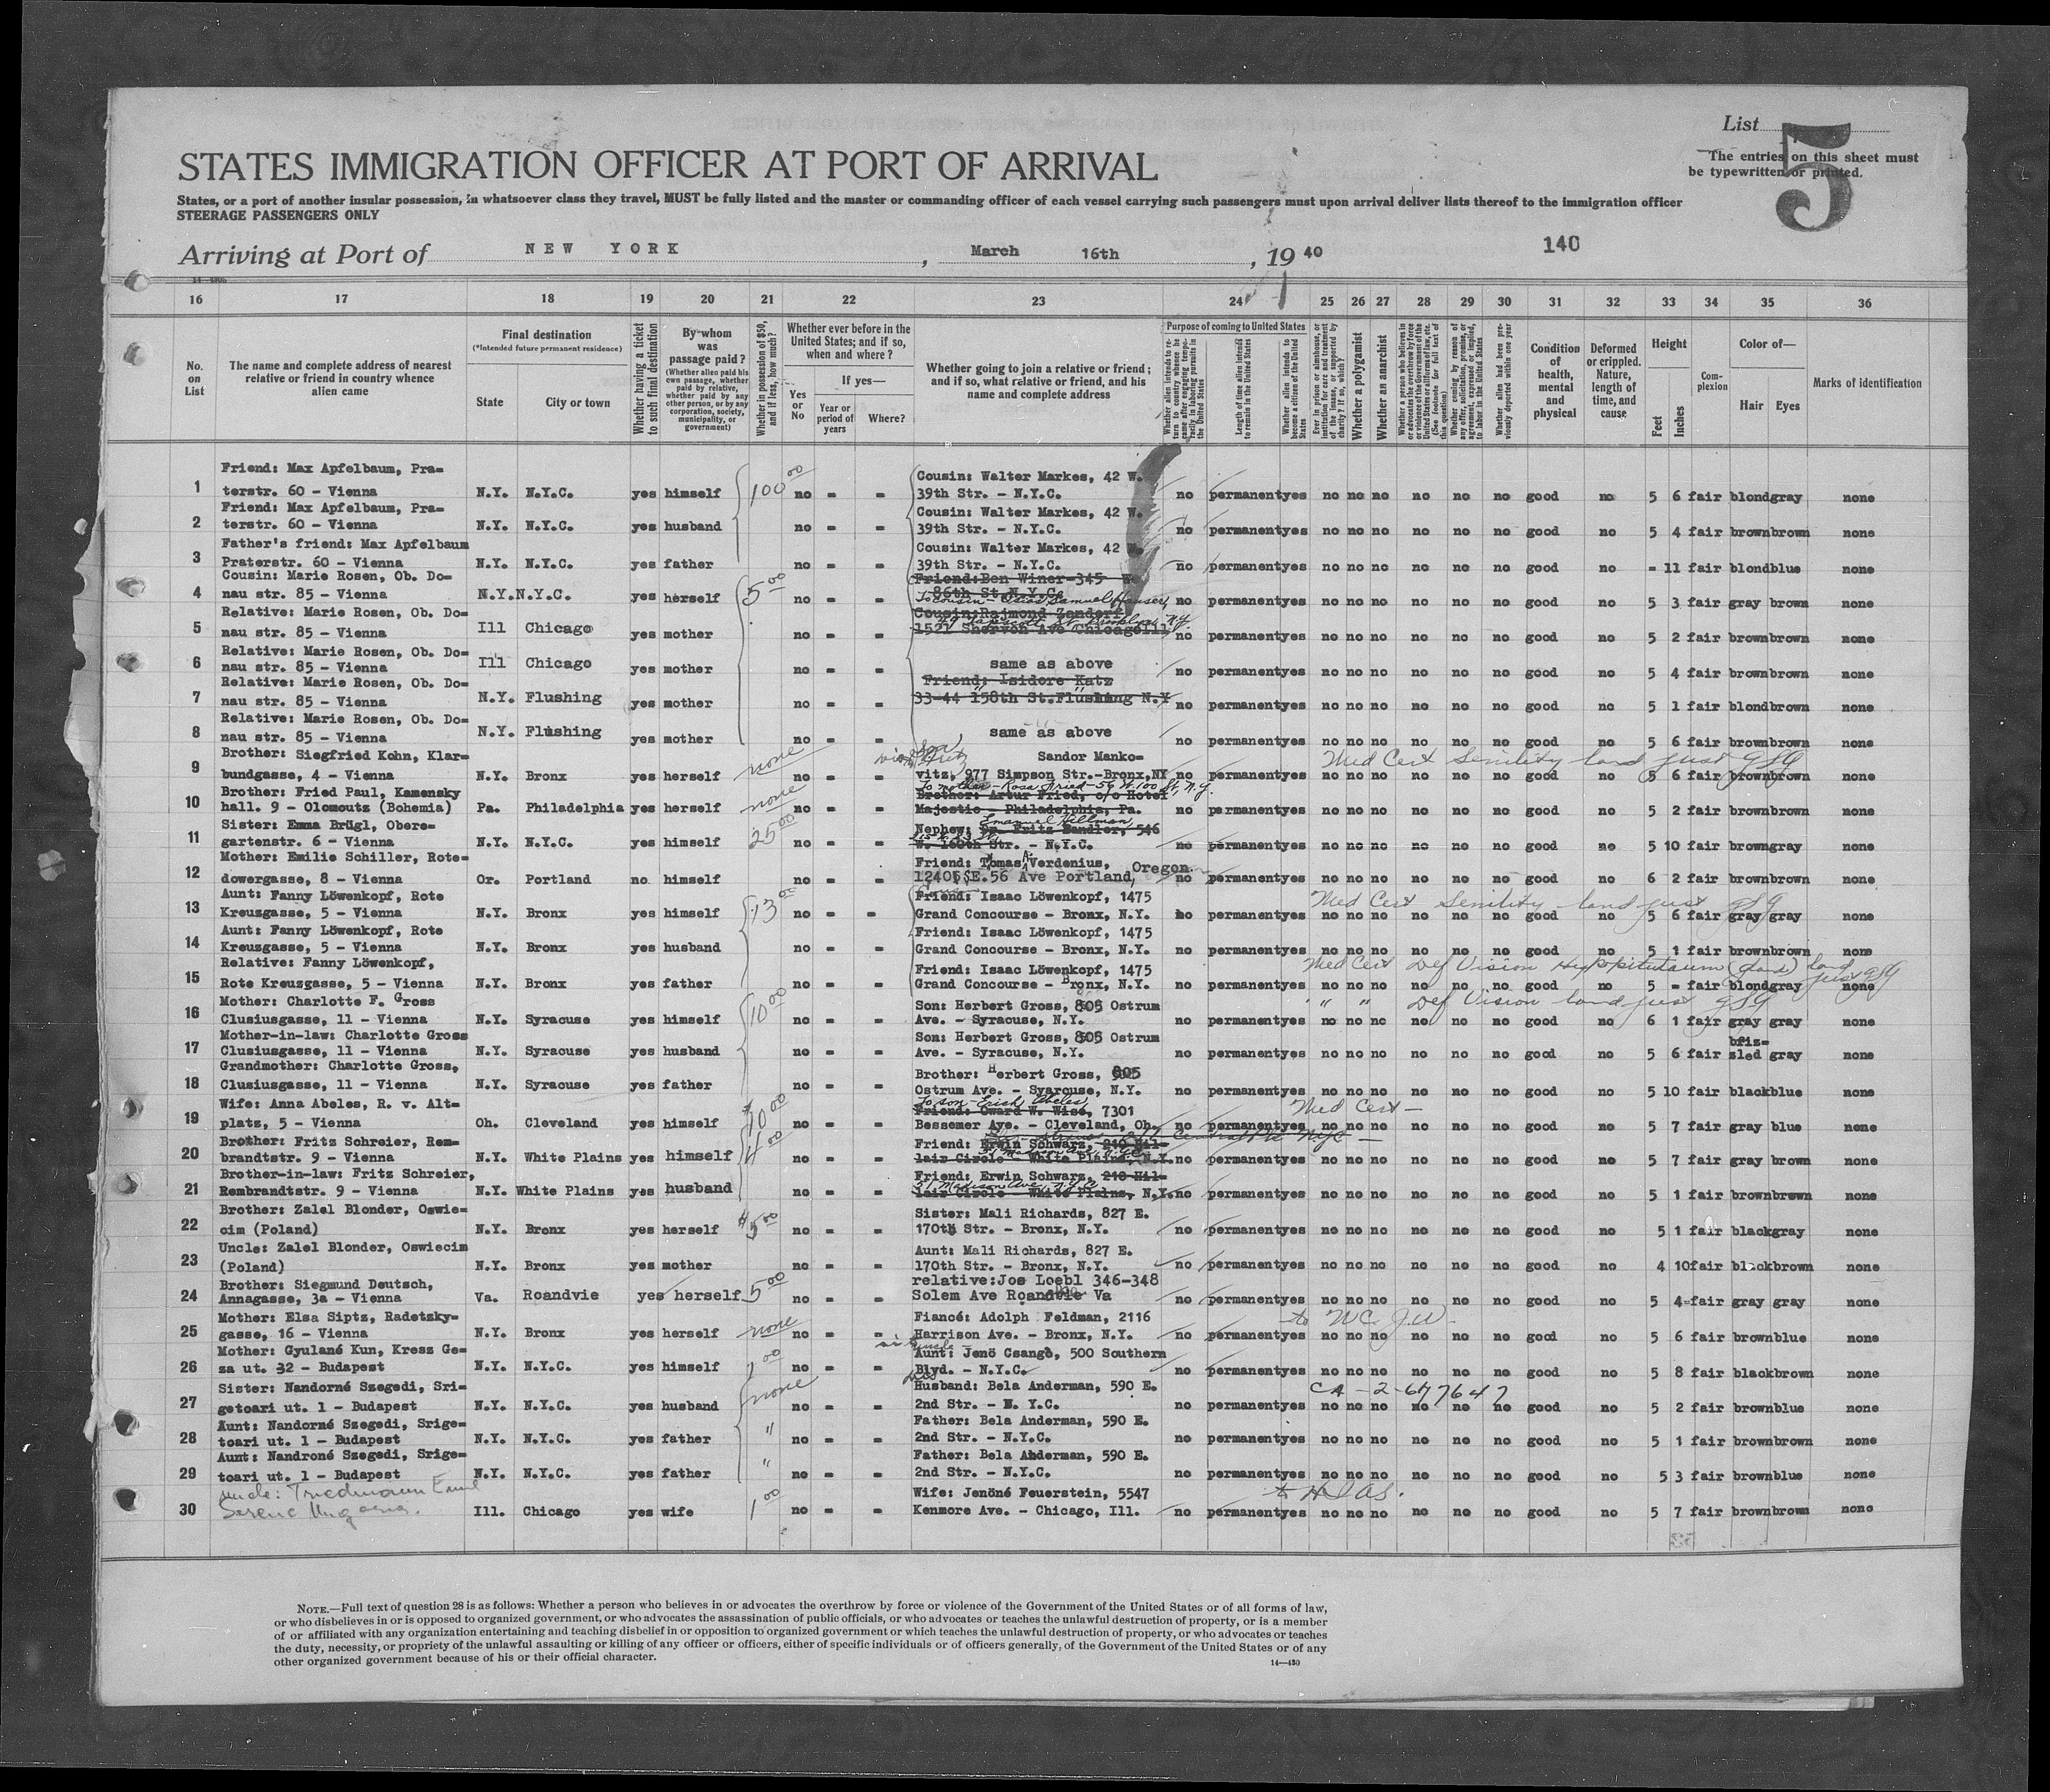 List
5
The entries on this sheet must
be typewritten or printed.
STATES IMMIGRATION OFFICER AT PORT OF ARRIVAL
States, or a port of another insular possession, in whatsoever class they travel, MUST be fully listed and the master or commanding officer of each vessel carrying such passengers must upon arrival deliver lists thereof to the immigration officer
STEERAGE PASSENGERS ONLY
Arriving at Port of NEW YORK, March 16th, 19 40
140
16 17 18 19 20 21 22 23 24 25 26 27 28 29 30 31 32 33 34 35 36
No. on List
The name and complete address of nearest relative or friend in country whence alien came
Final destination
(*Intended future permanent residence)
State City or town
Whether having a ticket to such final destination
By whom was passage paid?
(Whether alien paid his own passage, whether paid by relative, whether paid by any other person, or by any corporation, society, municipality, or government)
Whether in possession of $50, and if less, how much?
Whether ever before in the United States; and if so, when and where?
Yes or No
If yes—
Year or period of years
Where?
Whether going to join a relative or friend; and if so, what relative or friend, and his name and complete address
Purpose of coming to United States
Length of time alien intends to remain in the United States
Whether alien intends to become a citizen of the United States
Whether a polygamist
Whether an anarchist
Condition of health, mental and physical
Deformed or crippled. Nature, length of time, and cause
Height
Feet Inches
Complexion
Color of—
Hair Eyes
Marks of identification
1 Friend: Max Apfelbaum, Pra=
terstr. 60 - Vienna N.Y. N.Y.C. yes himself 100 00 no - - Cousin: Walter Markes, 42 W.
39th Str. - N.Y.C. no permanent yes no no no no no no good no 5 6 fair blond gray none
2 Friend: Max Apfelbaum, Pra=
terstr. 60 - Vienna N.Y. N.Y.C. yes husband no - - Cousin: Walter Markes, 42 W.
39th Str. - N.Y.C. no permanent yes no no no no no no good no 5 4 fair brown brown none
3 Father's friend: Max Apfelbaum
Praterstr. 60 - Vienna N.Y. N.Y.C. yes father no - - Cousin: Walter Markes, 42 W.
39th Str. - N.Y.C. no permanent yes no no no no no no good no - 11 fair blond blue none
4 Cousin: Marie Rosen, Ob. Do=
nau str. 85 - Vienna N.Y. N.Y.C. yes herself 5 00 no - - Friend: Ben Winer-345 W.
86th St N.Y.C. no permanent yes no no no no no no good no 5 3 fair gray brown none
5 Relative: Marie Rosen, Ob. Do=
nau str. 85 - Vienna Ill Chicago yes mother no - - Cousin: Rajmond Zandorf
1521 Ave Chicago Ill no permanent yes no no no no no no good no 5 2 fair brown brown none
6 Relative: Marie Rosen, Ob. Do=
nau str. 85 - Vienna Ill Chicago yes mother no - - same as above no permanent yes no no no no no no good no 5 4 fair brown brown none
7 Relative: Marie Rosen, Ob. Do=
nau str. 85 - Vienna N.Y. Flushing yes mother no - - Friend: Isidore Katz
33-44 158th St. Flushing N.Y no permanent yes no no no no no no good no 5 1 fair blond brown none
8 Relative: Marie Rosen, Ob. Do=
nau str. 85 - Vienna N.Y. Flushing yes mother no - - same as above no permanent yes no no no no no no good no 5 6 fair brown brown none
9 Brother: Siegfried Kohn, Klar=
bundgasse, 4 - Vienna N.Y. Bronx yes herself none no - - Son Sandor Manko=
vitz, 977 Simpson Str.-Bronx, NY no permanent yes no no no no no no good no 5 6 fair brown brown none
Med Cert Senility land just
10 Brother: Fried Paul, Kamensky
hall. 9 - Olomoutz (Bohemia) Pa. Philadelphia yes herself none no - - To mother - Rosa Fried - 59 W. 100 St, N.Y.
Brother: Artur Fried, c/o Hotel
Majestic - Philadelphia, Pa. no permanent yes no no no no no no good no 5 2 fair brown brown none
11 Sister: Emma Brügl, Obere=
gartenstr. 6 - Vienna N.Y. N.Y.C. yes himself 25 00 no - - Emanuel Hillman
Nephew: Dr. Fritz Sandler, 546
W. 160th Str. - N.Y.C. no permanent yes no no no no no no good no 5 10 fair brown gray none
12 Mother: Emilie Schiller, Rote=
dowergasse, 8 - Vienna Or. Portland no himself no - - Friend: Tomas A. Verdenius,
12405 S.E. 56 Ave Portland, Oregon no permanent yes no no no no no no good no 6 2 fair brown brown none
13 Aunt: Fanny Löwenkopf, Rote
Kreuzgasse, 5 - Vienna N.Y. Bronx yes himself 13 00 no - - Friend: Isaac Löwenkopf, 1475
Grand Concourse - Bronx, N.Y. no permanent yes no no no no no no good no 5 6 fair gray gray none
Med Cert Senility - land just
14 Aunt: Fanny Löwenkopf, Rote
Kreuzgasse, 5 - Vienna N.Y. Bronx yes husband no - - Friend: Isaac Löwenkopf, 1475
Grand Concourse - Bronx, N.Y. no permanent yes no no no no no no good no 5 1 fair brown brown none
15 Relative: Fanny Löwenkopf,
Rote Kreuzgasse, 5 - Vienna N.Y. Bronx yes father no - - Friend: Isaac Löwenkopf, 1475
Grand Concourse - Bronx, N.Y. no permanent yes no no no no no no good no 5 - fair blond gray none
Med Cert Def Vision land just
16 Mother: Charlotte F. Gross
Clusiusgasse, 11 - Vienna N.Y. Syracuse yes himself 10 00 no - - Son: Herbert Gross, 805 Ostrum
Ave. - Syracuse, N.Y. no permanent yes no no no no no no good no 6 1 fair gray gray none
" " Def Vision land just
17 Mother-in-law: Charlotte Gross
Clusiusgasse, 11 - Vienna N.Y. Syracuse yes husband no - - Son: Herbert Gross, 805 Ostrum
Ave. - Syracuse, N.Y. no permanent yes no no no no no no good no 5 6 fair sled gray none
18 Grandmother: Charlotte Gross,
Clusiusgasse, 11 - Vienna N.Y. Syracuse yes father no - - Brother: Herbert Gross, 805
Ostrum Ave. - Syarcuse, N.Y. no permanent yes no no no no no no good no 5 10 fair black blue none
19 Wife: Anna Abeles, R. v. Alt=
platz, 5 - Vienna Oh. Cleveland yes himself $10 00 no - - To son - Erich Abeles
Friend: Oward W. Wise, 7301
Bessemer Ave. - Cleveland, Oh. no permanent yes no no no no no no good no 5 7 fair gray blue none
Med Cert -
20 Brother: Fritz Schreier, Rem=
brandtstr. 9 - Vienna N.Y. White Plains yes himself 4 00 no - - Friend: Erwin Schwarz, 210 Hil=
lair Circle - White Plains, N.Y. no permanent yes no no no no no no good no 5 7 fair gray brown none
21 Brother-in-law: Fritz Schreier,
Rembrandtstr. 9 - Vienna N.Y. White Plains yes husband no - - Friend: Erwin Schwarz, 210 Hil=
51 Madison Ave, N.Y.C.
lair Circle - White Plains, N.Y. no permanent yes no no no no no no good no 5 1 fair brown brown none
22 Brother: Zalel Blonder, Oswie=
cim (Poland) N.Y. Bronx yes herself $5 00 no - - Sister: Mali Richards, 827 E.
170th Str. - Bronx, N.Y. no permanent yes no no no no no no good no 5 1 fair black gray none
23 Uncle: Zalel Blonder, Oswiecim
(Poland) N.Y. Bronx yes mother no - - Aunt: Mali Richards, 827 E.
170th Str. - Bronx, N.Y. no permanent yes no no no no no no good no 4 10 fair black brown none
24 Brother: Siegmund Deutsch,
Annagasse, 3a - Vienna Va. Roandvie yes herself 5 00 no - - relative: Joe Loebl 346-348
Solem Ave Roandvie Va no permanent yes no no no no no no good no 5 4 fair gray gray none
25 Mother: Elsa Siptz, Radetzky=
gasse, 16 - Vienna N.Y. Bronx yes herself none no - - Fiancé: Adolph Feldman, 2116
Harrison Ave. - Bronx, N.Y. no permanent yes no no no no no no good no 5 6 fair brown blue none
26 Mother: Gyulané Kun, Kress Ge=
za ut. 32 - Budapest N.Y. N.Y.C. yes himself 1 00 no - - Aunt: Jenö Csango, 500 Southern
Blvd. - N.Y.C. no permanent yes no no no no no no good no 5 8 fair black brown none
27 Sister: Nandorné Szegedi, Sri=
getoari ut. 1 - Budapest N.Y. N.Y.C. yes husband none no - - Husband: Bela Anderman, 590 E.
2nd Str. - N. Y.C. no permanent yes no no no no no no good no 5 2 fair brown blue none
28 Aunt: Nandorné Szegedi, Srige=
toari ut. 1 - Budapest N.Y. N.Y.C. yes father " no - - Father: Bela Anderman, 590 E.
2nd Str. - N.Y.C. no permanent yes no no no no no no good no 5 1 fair brown brown none
29 Aunt: Nandroné Szegedi, Srige=
toari ut. 1 - Budapest N.Y. N.Y.C. yes father " no - - Father: Bela Anderman, 590 E.
2nd Str. - N.Y.C. no permanent yes no no no no no no good no 5 3 fair brown blue none
30 uncle: Friedmann Emil
Ill. Chicago yes wife 1 00 no - - Wife: Jenöné Feuerstein, 5547
Kenmore Ave. - Chicago, Ill. no permanent yes no no no no no no good no 5 7 fair brown brown none
NOTE.—Full text of question 28 is as follows: Whether a person who believes in or advocates the overthrow by force or violence of the Government of the United States or of all forms of law,
or who disbelieves in or is opposed to organized government, or who advocates the assassination of public officials, or who advocates or teaches the unlawful destruction of property, or is a member
of or affiliated with any organization entertaining and teaching disbelief in or opposition to organized government or which teaches the unlawful destruction of property, or who advocates or teaches
the duty, necessity, or propriety of the unlawful assaulting or killing of any officer or officers, either of specific individuals or of officers generally, of the Government of the United States or of any
other organized government because of his or their official character.
14—430